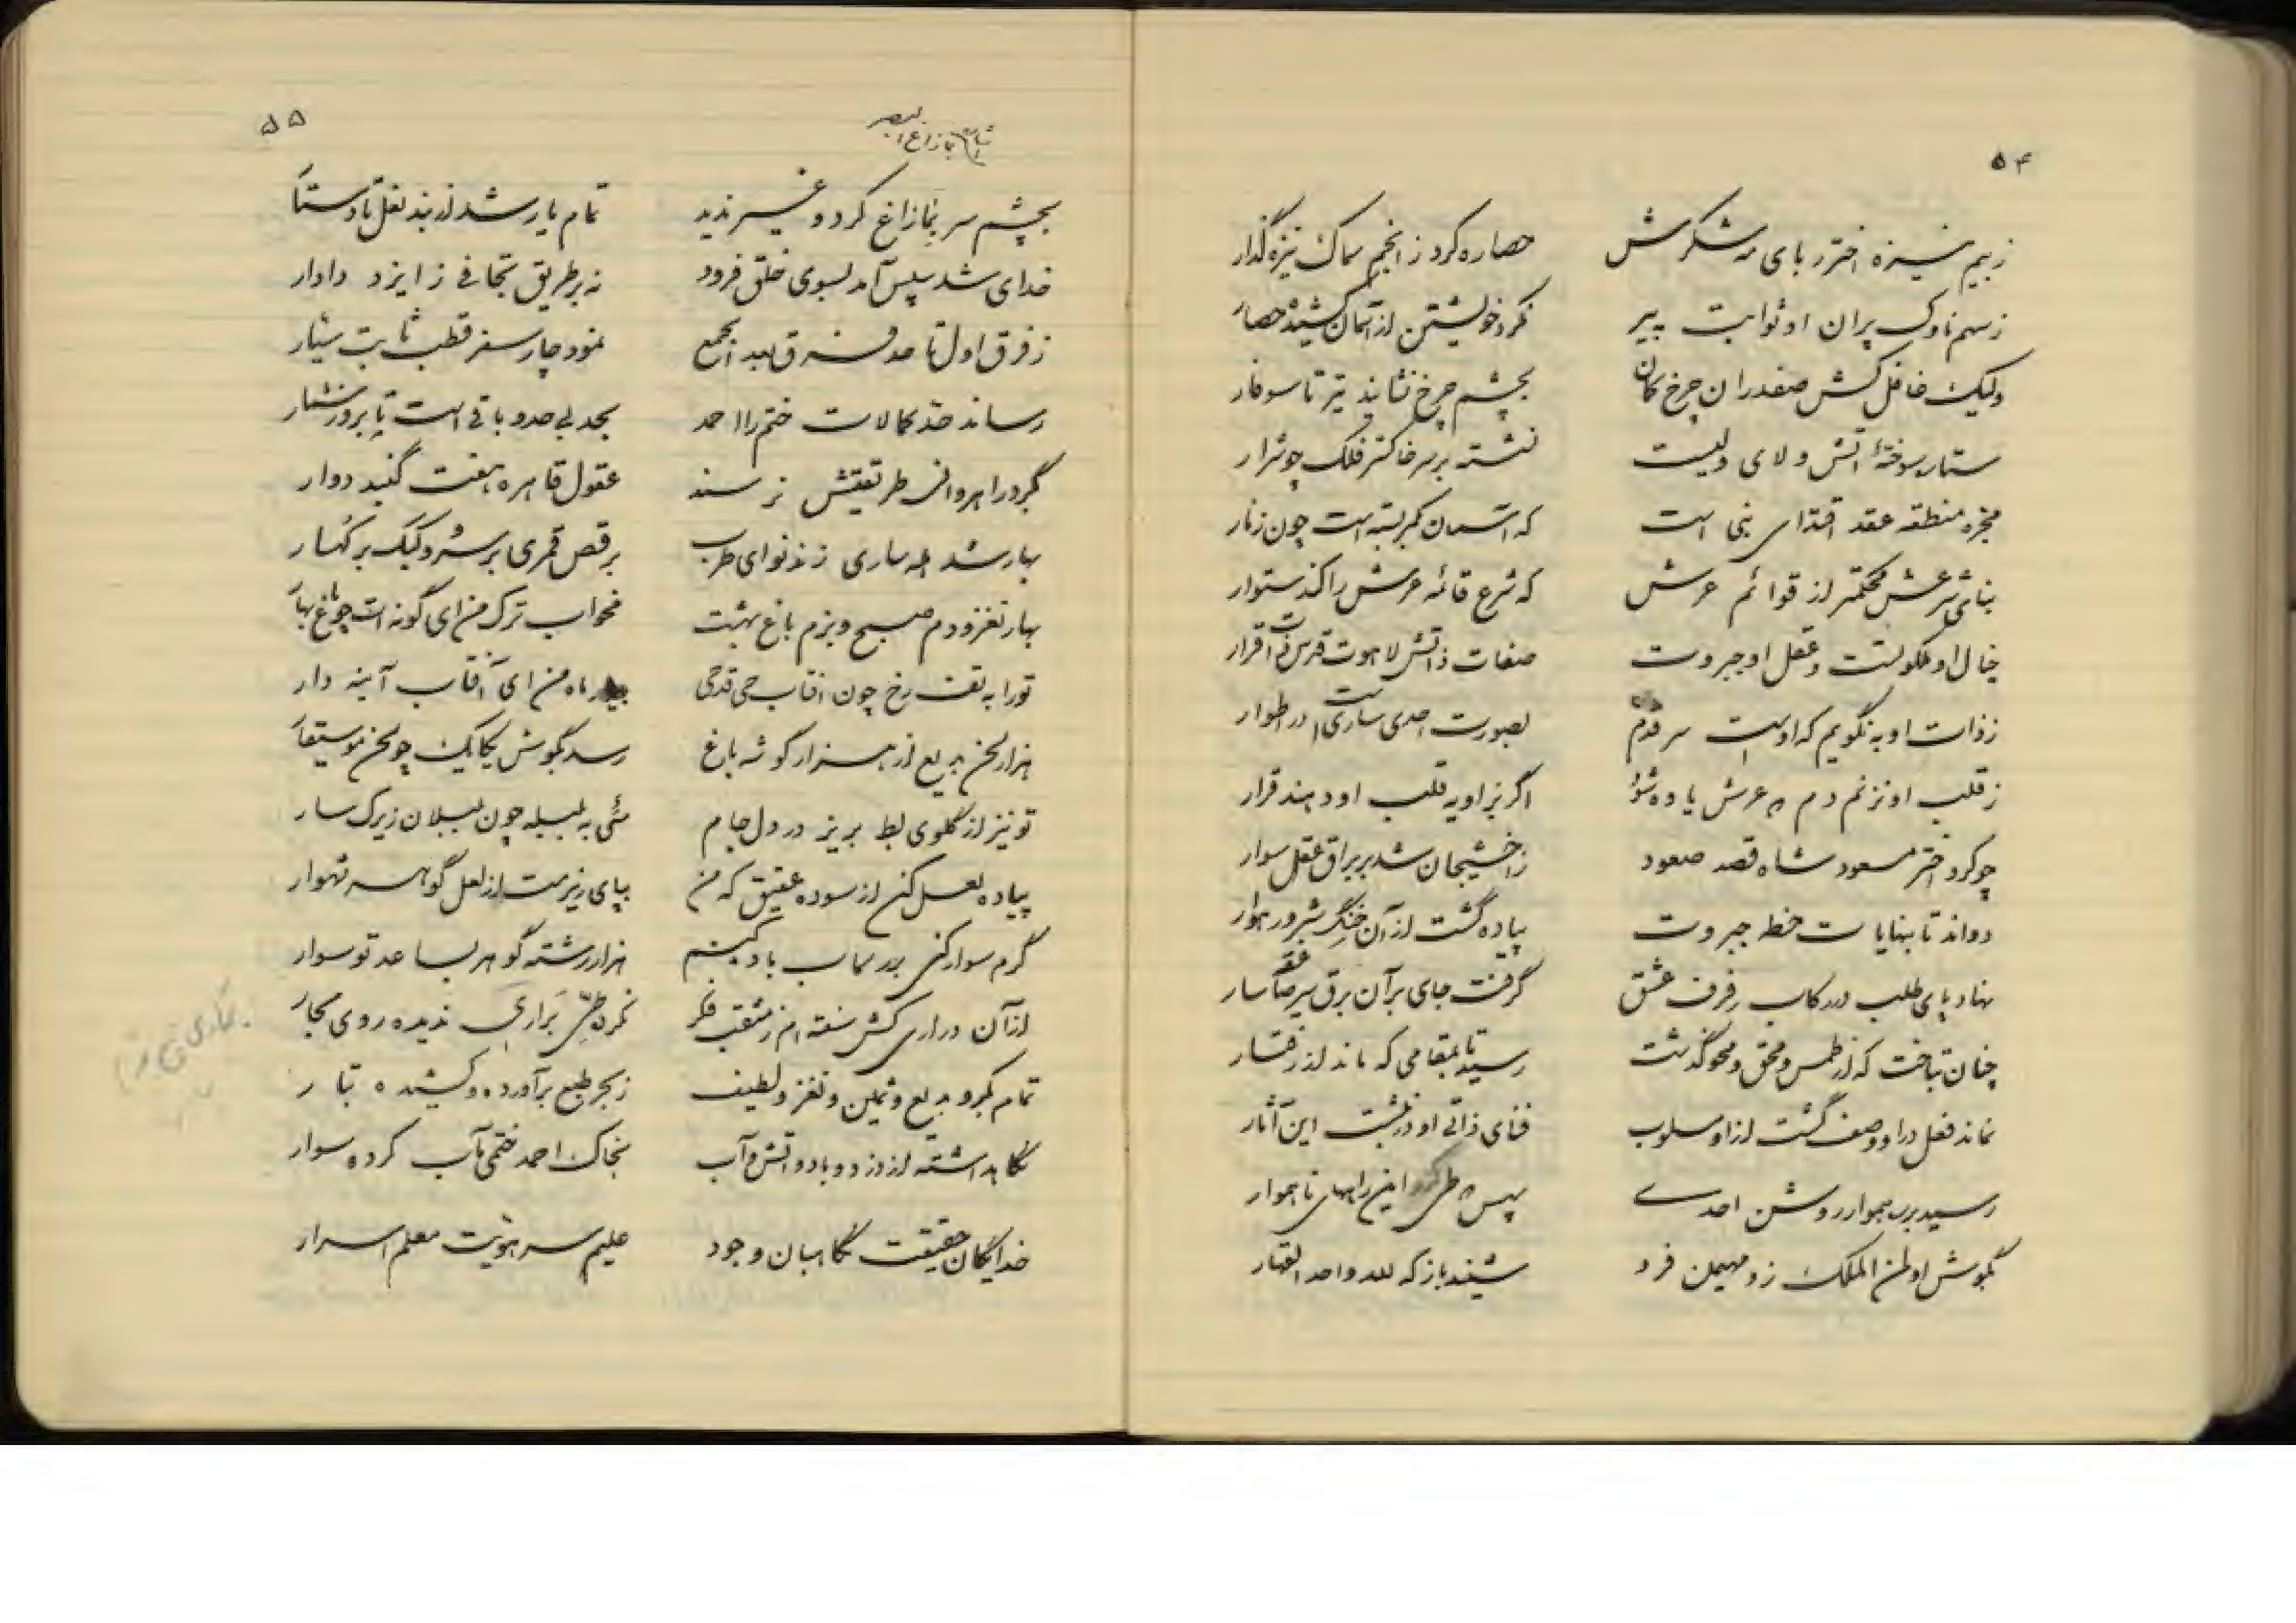 ۵۴
ز بیم نیزه اختر ربای مه شکرش حصاره کرد ز انجم سماک نیزه گذار
ز سهم ناوک پران او ثوابت پیر نکرد خویشتن از آسمان کشیده حصار
ولیک غافل کش صفدران چرخ کمان بچشم چرخ نشانید تیر تا سوفار
ستاره سوختهٔ آتش ولای ولیست نشسته بر سر خاکستر فلک چو شرار
مجره منطقه عقد اقتدای نبی است که آسمان کمر بسته است چون زنار
بنای شرعش محکمتر از قوائم عرش که شرع قائمه عرش را کند ستوار
خیال او ملکوتست و عقل او جبروت صفات ذاتش لاهوت قدس اقرار
ز ذات او به نگویم که اوست سر قدم بصورت احدی ساریست در اطوار
ز قلب او نزنم دم که عرش یاوه شود اگر بزاویه قلب او دهند قرار
چو کرد اختر مسعود شاه قصد صعود ز اخشیجان شد بر براق عقل سوار
دواند تا بنهایات خطه جبروت پیاده گشت از آن خنگ رهوار
نهاد پای طلب در رکاب رفرف عشق گرفت جای بر آن برق سیر صاعقه سار
چنان بتاخت که از طمس و محق و محو گذشت رسید تا بمقامی که ماند از رفتار
نماند فعل در او وصف گشت از او مسلوب فنای ذاتی او در نبشت این آثار
رسید بر در هموار روشن احدی پس که طی کرد این راههای ناهموار
بگوش او لمن الملک زد مهیمن فرد شنید باز که لله واحد القهار
۵۵
بچشم سر بنما زاغ کرد و غیر ندید تمام یار شد از بند نعل تا دستار
خدای شد سپس آمد بسوی خلق فرود نه بر طریق تجافی ز ایزد دادار
ز فرق اول تا حد فرق بعد الجمع نمود چار سفر قطب ثابت سیار
رساند حد کمالات ختم را احمد بحد بی حد و باقی است تا بروز شمار
بگرد راهروان طریقتش نرسند عقول قاهره هفت گنبد دوار
بهار شد هله ساری زند نوای طرب برقص قمری بر سرو و کبک بر کهسار
بهار نغز و دم صبح و بزم باغ بهشت بخواب ترک من ای گونه ات چو باغ بهار
تو را به تفت رخ چون آفتاب می قدحی بیار ماه من ای آفتاب آینه دار
هزار لحن بدیع از هزار گوشه باغ رسد بگوش یکایک چو لحن موسیقار
تو نیز از گلوی بط بریز در دل جام مئی به بلبله چون بلبلان زیرک سار
پیاده لعل کن از سوده عقیق که من بپای ریزمت از لعل گوهر شهوار
گرم سوار کنی بر سماب باد کنیم هزار رشته گوهر بساعد تو سوار
از آن دراری کش سفته ام ز مثقب فکر نکرده طی براری ندیده روی بحار
تمام بکر و بدیع و ثمین و نغز و لطیف ز بحر طبع برآورده و کشیده تبار
نگاهداشته از دزد و باد و آتش و آب بخاک احمد ختمی مآب کرده سوار
خدایگان حقیقت نگاهبان وجود علیم سر هویت معلم اسرار